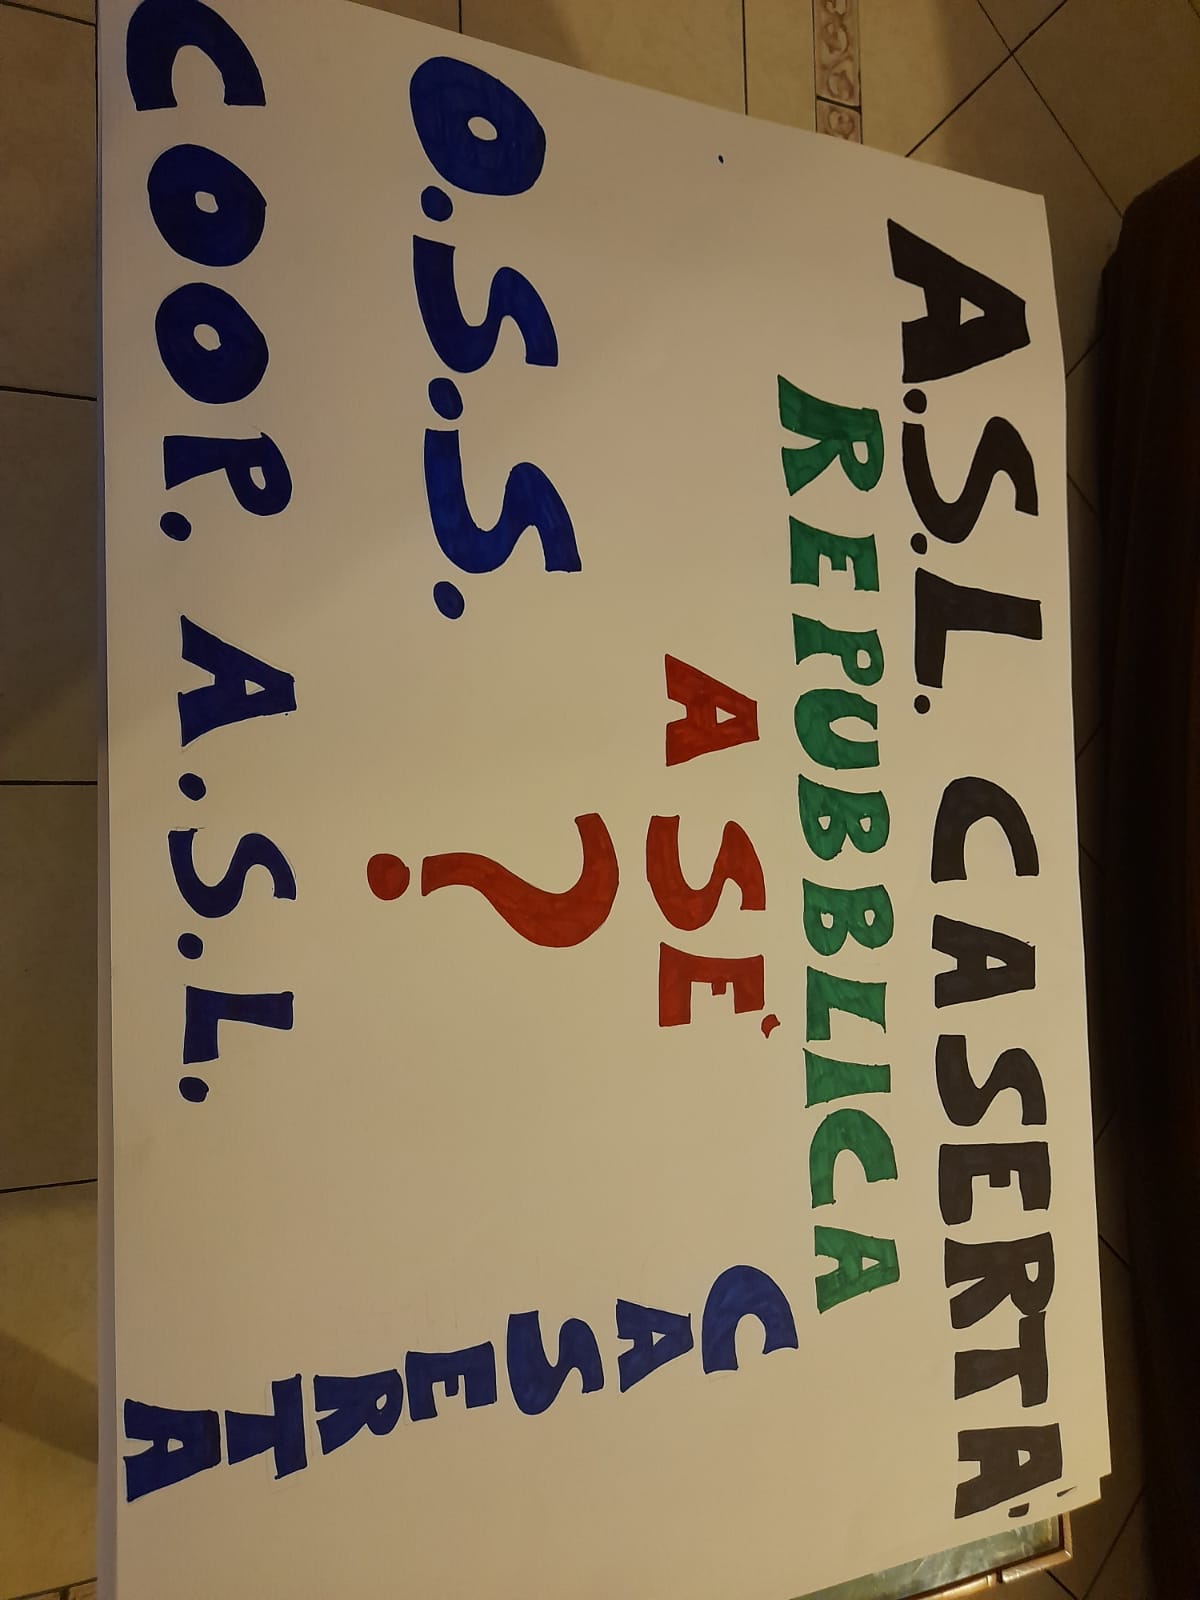 A.S.L. CASERTA:
REPUBBLICA
A SE'
?
O.S.S.
COOP. A.S.L.
CASERTA